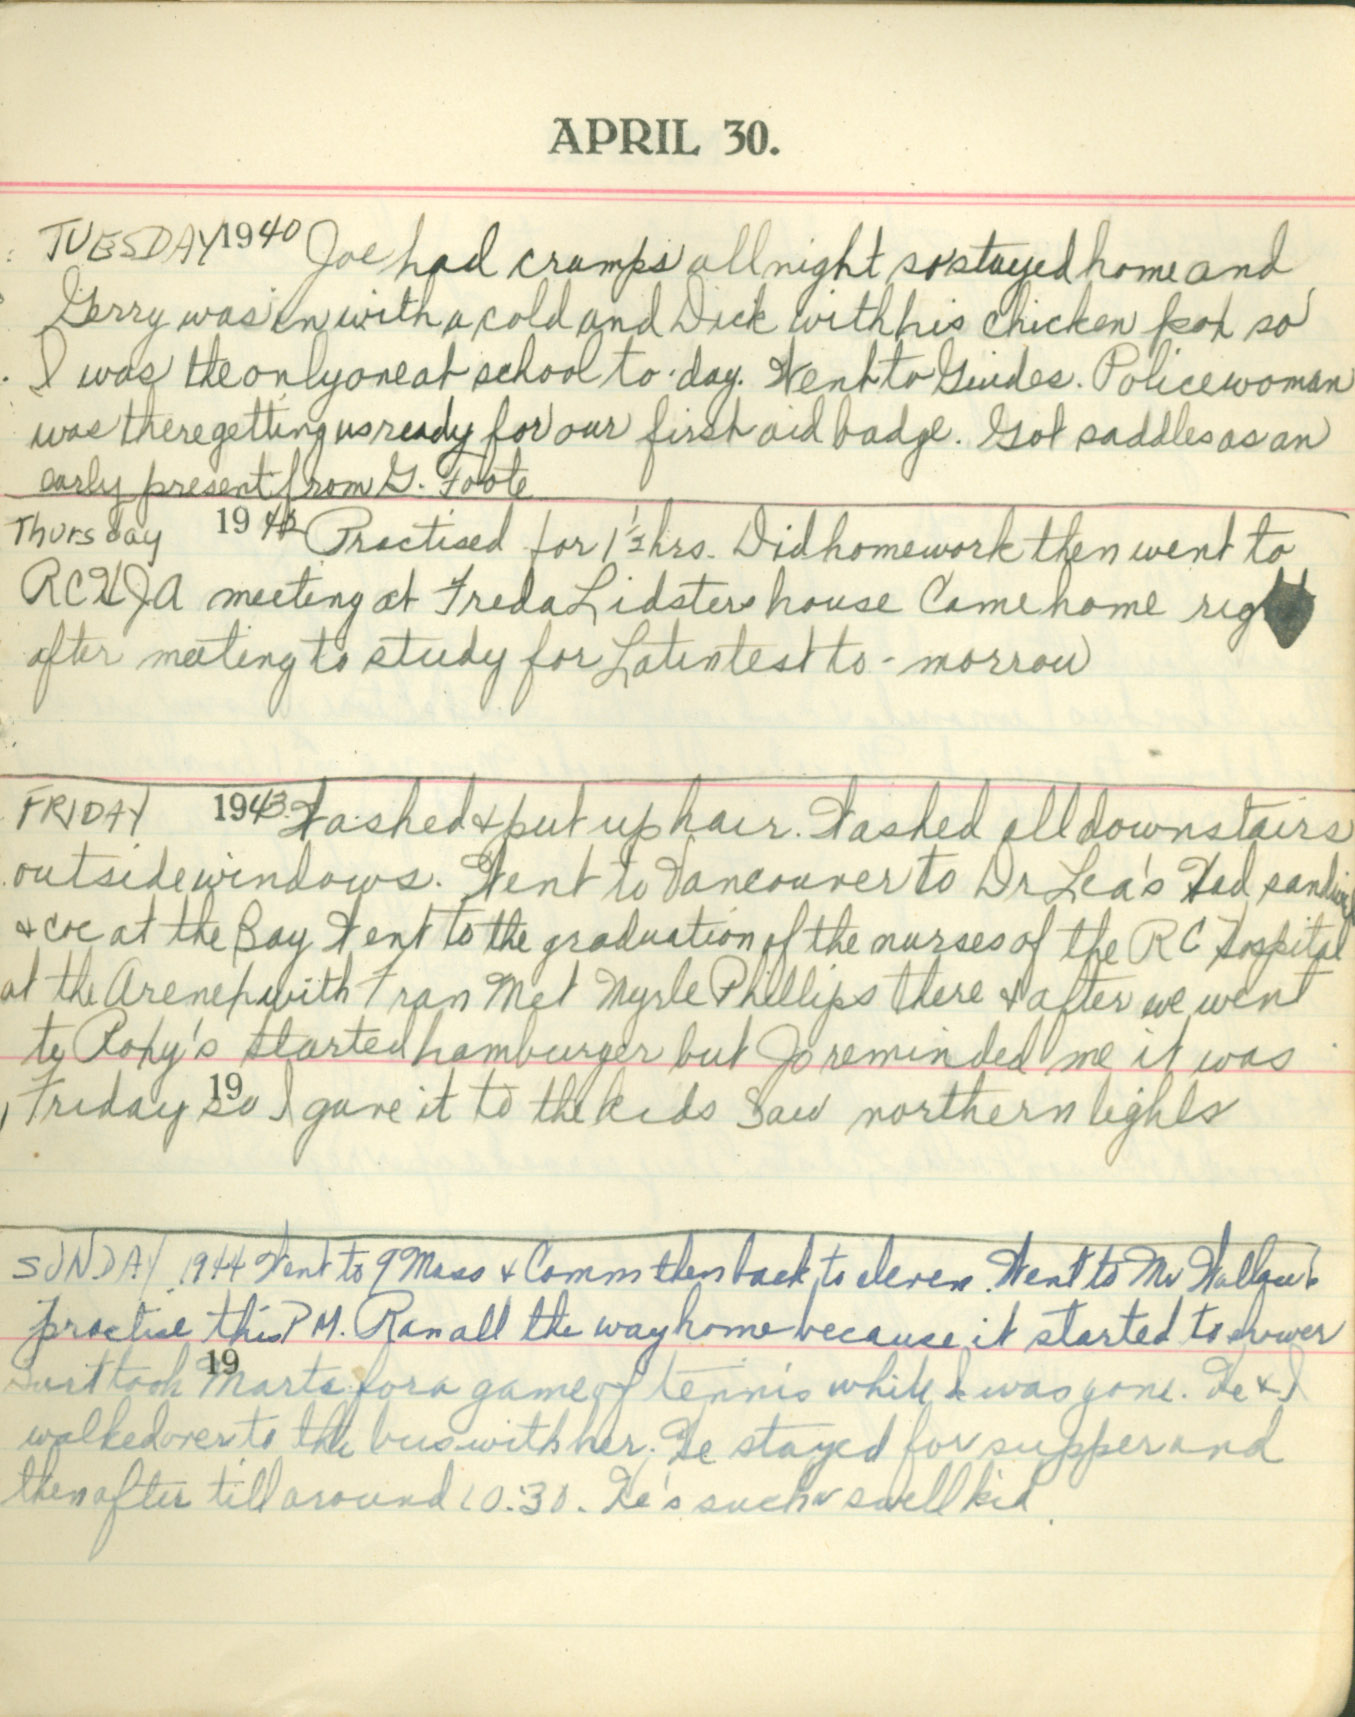 APRIL 30.
TUESDAY 1940 Joe had cramps all night so stayed home and
Gerry was in with a cold and Dick with his chicken pox so
I was the only one at school to-day. Went to Guides. Policewoman
was there getting us ready for our first aid badge. Got saddles as an
early present from G. Foote
Thursday 1942 Practised for 1 1/2 hrs. Did homework then went to
meeting at Freda Lidsters house Came home rig
after meeting to study for Latin test to-morrow
FRIDAY 1943. Washed & put up hair. Washed all downstairs
outside windows. Went to Vancouver to Dr Lea's Had
& coc at the Bay Went to the graduation of the nurses of the RC Hospital
at the with Fran Met Myrle Phillips there & after we went
to started hamburger but Jo reminded me it was
Friday so I gave it to the kids Saw northern lights
19
SUNDAY 1944 Went to 9 Mass & Comm then back to eleven. Went to Mr
practise this P M. Ran all the way home because it started to shower
took for a game of tennis while I was gone. He & I
19
walked over to the bus with her. He stayed for supper and
then after till around 10:30. He's such a swell kid.